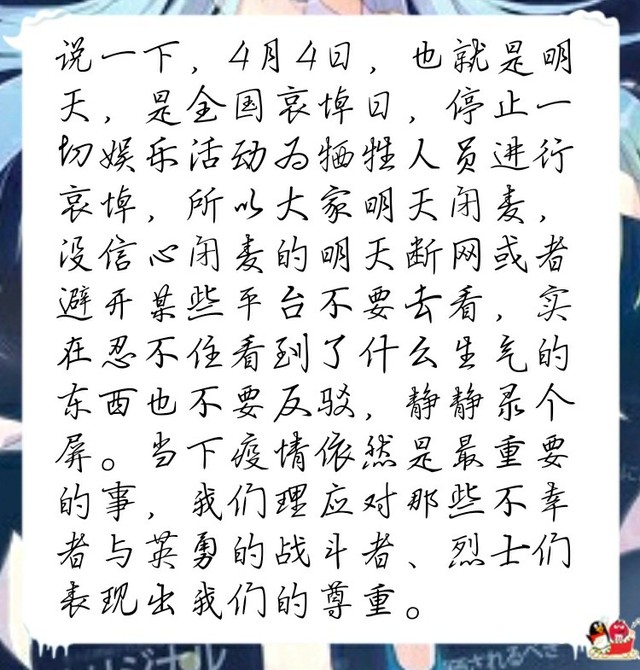 说一下，4月4日，也就是明
天，是全国哀悼日，停止一
切娱乐活动为牺牲人员进行
哀悼，所以大家明天闭麦，
没信心闭麦的明天断网或者
避开某些平台不要去看，实
在忍不住看到了什么生气的
东西也不要反驳，静静录个
屏。当下疫情依然是最重要
的事，我们理应对那些不幸
者与英勇的战斗者、烈士们
表现出我们的尊重。